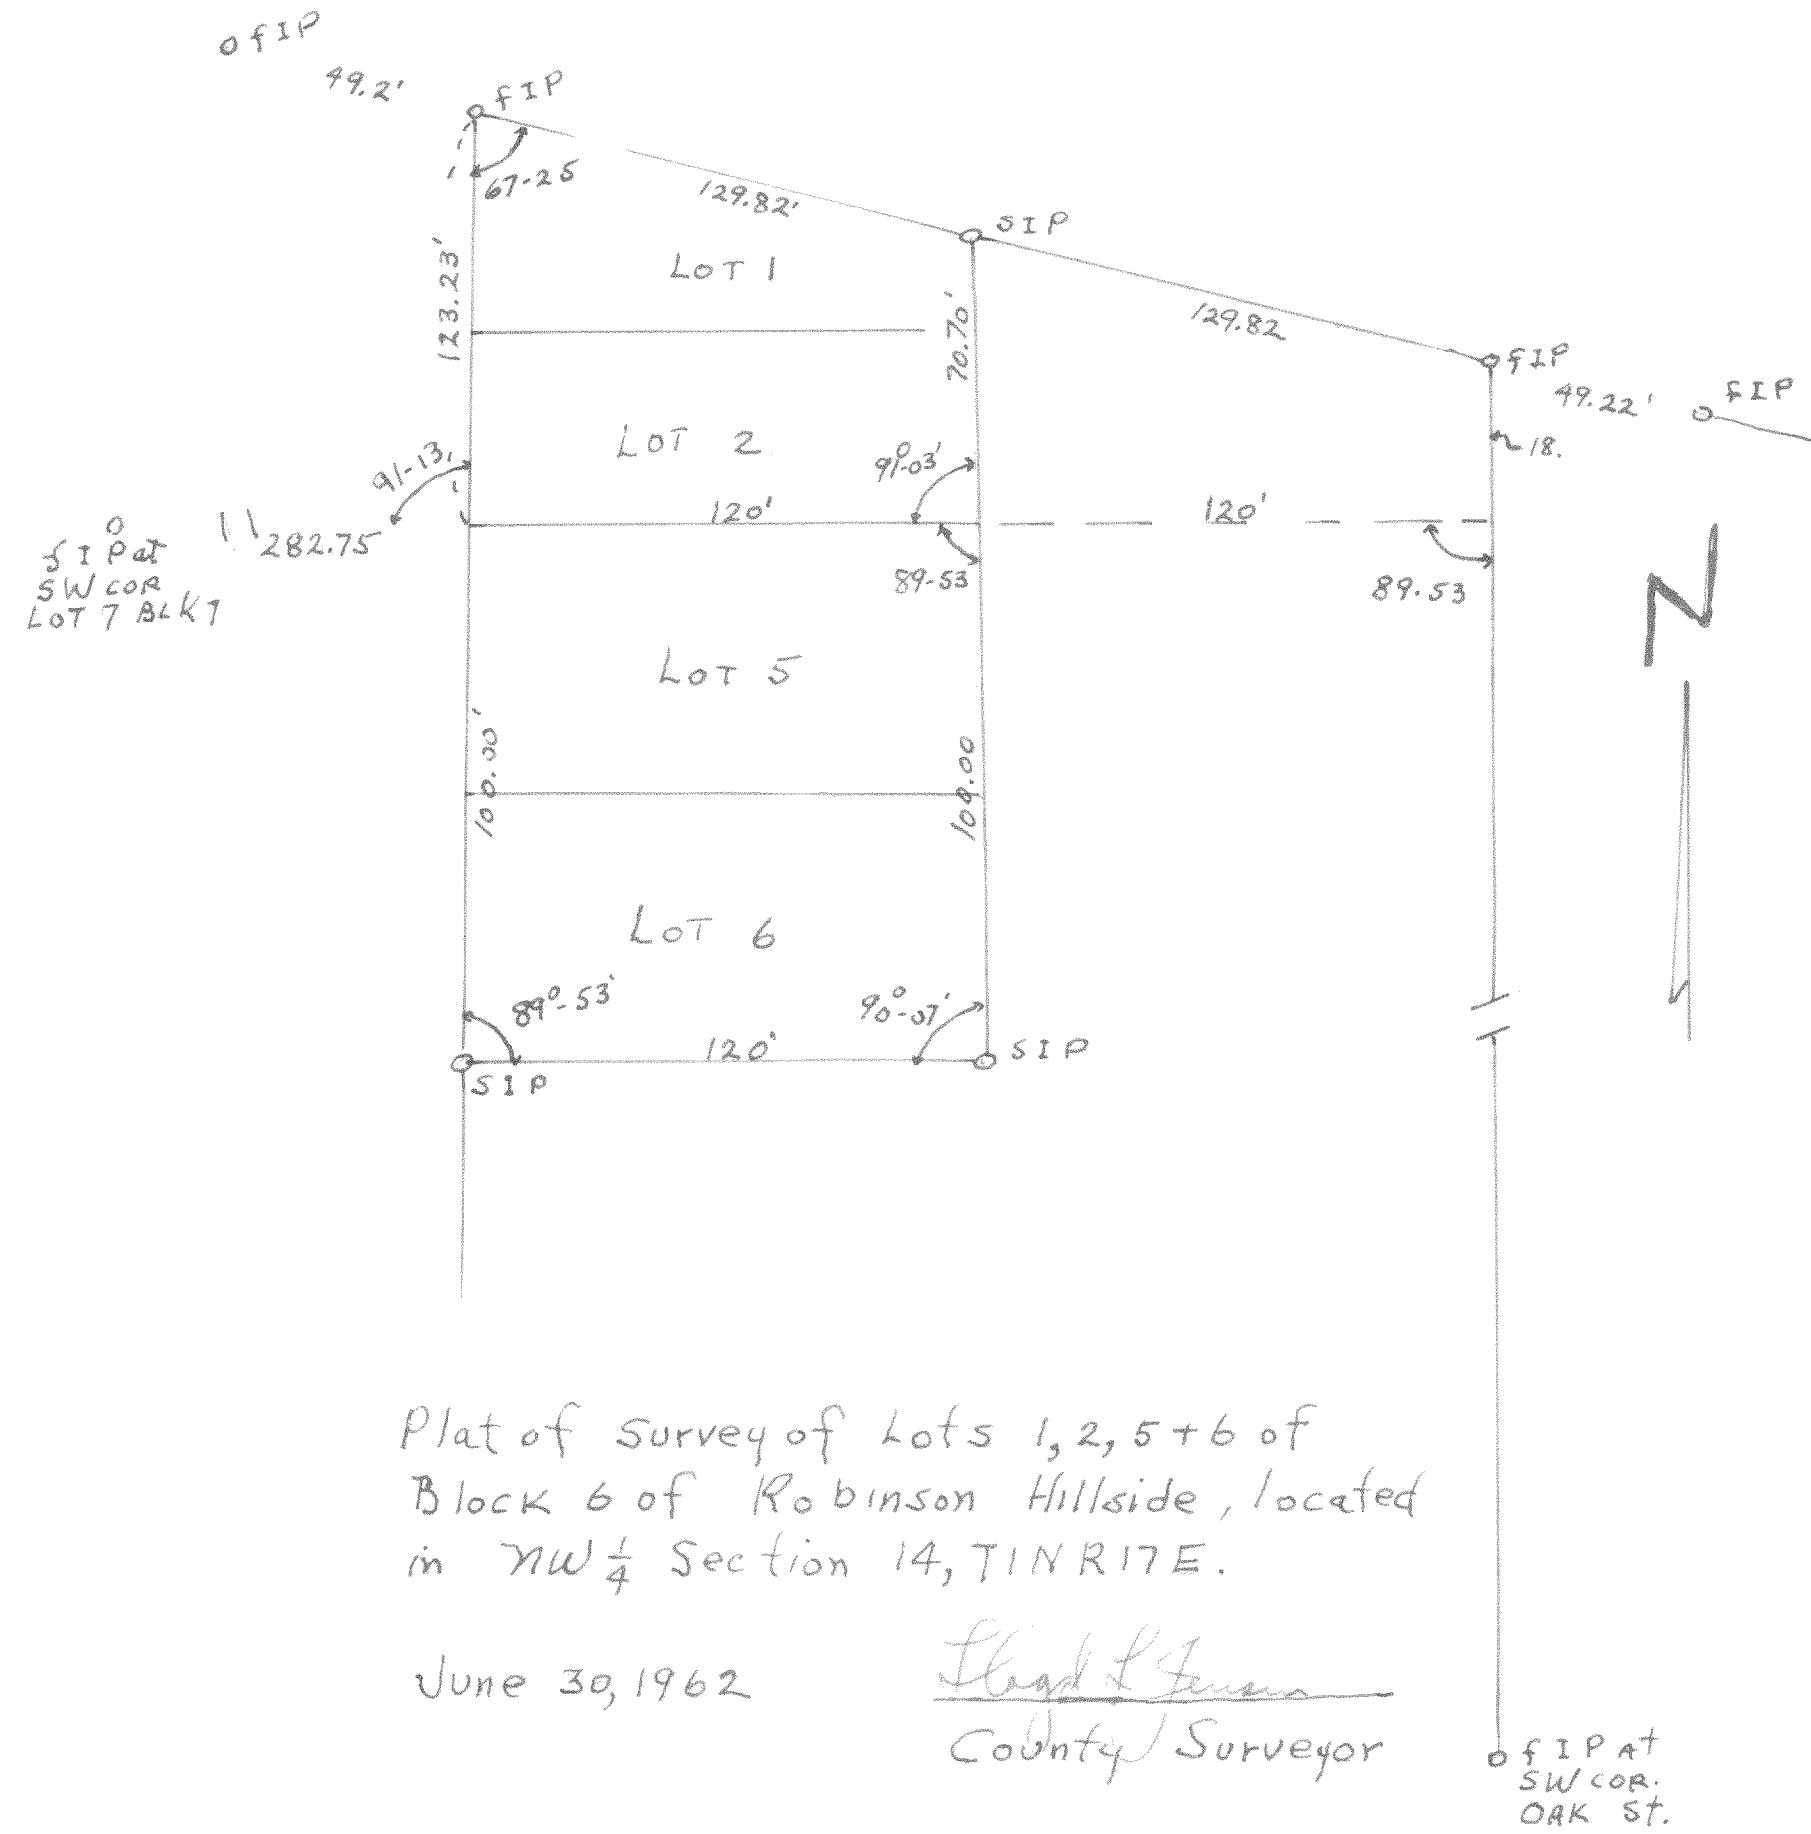 o fIP
49.2'
fIP
67-25
129.82'
SIP
LOT 1
123.23'
70.70'
129.82
fIP
49.22'
fIP
18.
LOT 2
91-13
91°-03'
120'
120'
282.75
fIP at
SW COR
LOT 7 BLK 7
89-53
89.53
N
LOT 5
100.00'
100.00
LOT 6
89°-53'
90°-07'
120'
SIP
SIP
Plat of Survey of Lots 1, 2, 5 + 6 of
Block 6 of Robinson Hillside, located
in NW 1/4 Section 14, T1N R17E.
June 30, 1962
County Surveyor
fIP At
SW COR.
OAK St.